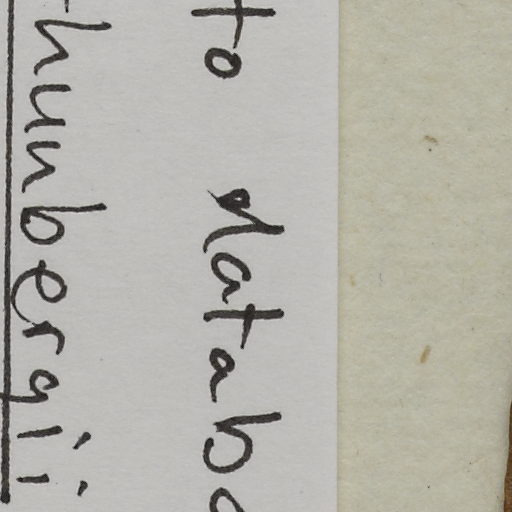 to databa
thunbergii